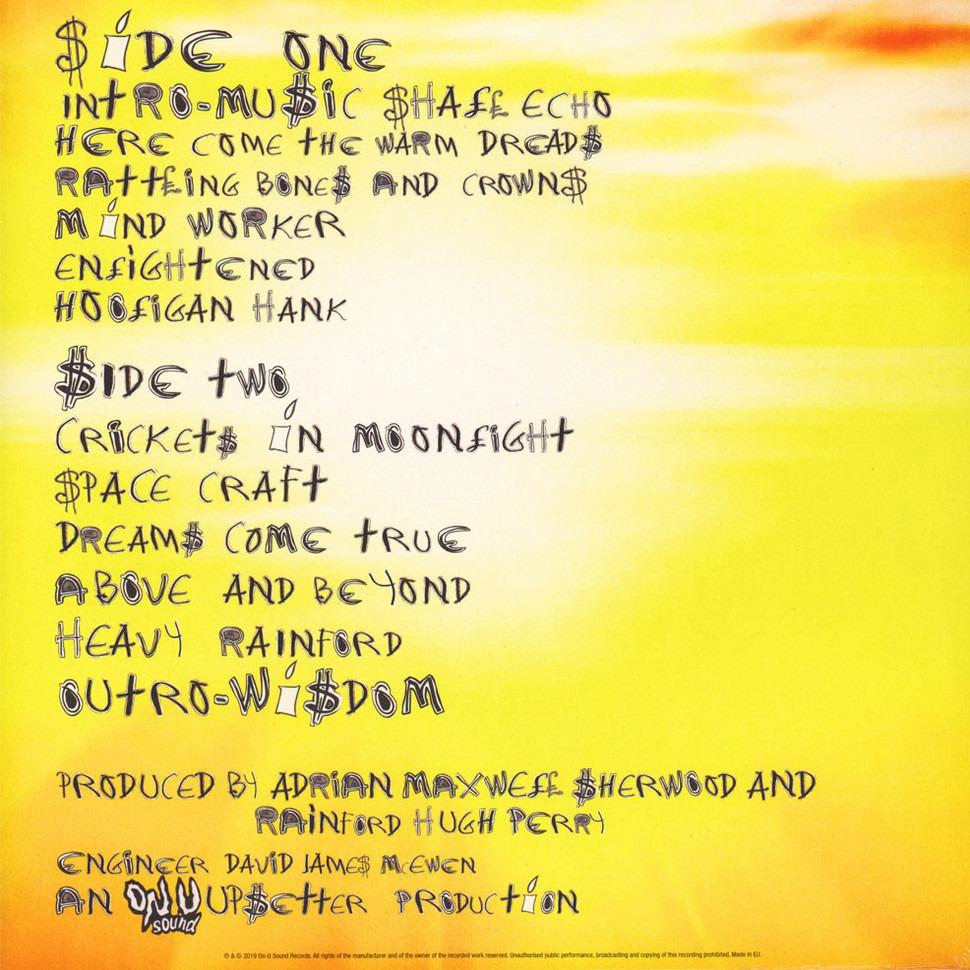 $iDE ONE
iNtRO-MU$iC $HA££ ECHO
HERE COME tHE WARM DREAD$
RAtt£iNG BONE$ AND CROWN$
MiND WORKER
EN£iGHtENED
HOO£iGAN HANK
$IDE tWO
CRiCKEt$ iN MOON£iGHt
$PACE CRAFt
DREAM$ COME tRUE
ABOVE AND BEYOND
HEAVY RAINFORD
OUtRO-Wi$DOM
PRODUCED BY ADRiAN MAXWE££ $HERWOOD AND
RAiNFORD HUGH PERRY
ENGiNEER DAViD JAME$ McEWEN
AN ON U sound UP$EttER PRODUCtiON
℗ & © 2019 On-U Sound Records. All rights of the manufacturer and of the owner of the recorded work reserved. Unauthorised public performance, broadcasting and copying of this recording prohibited. Made in EU.